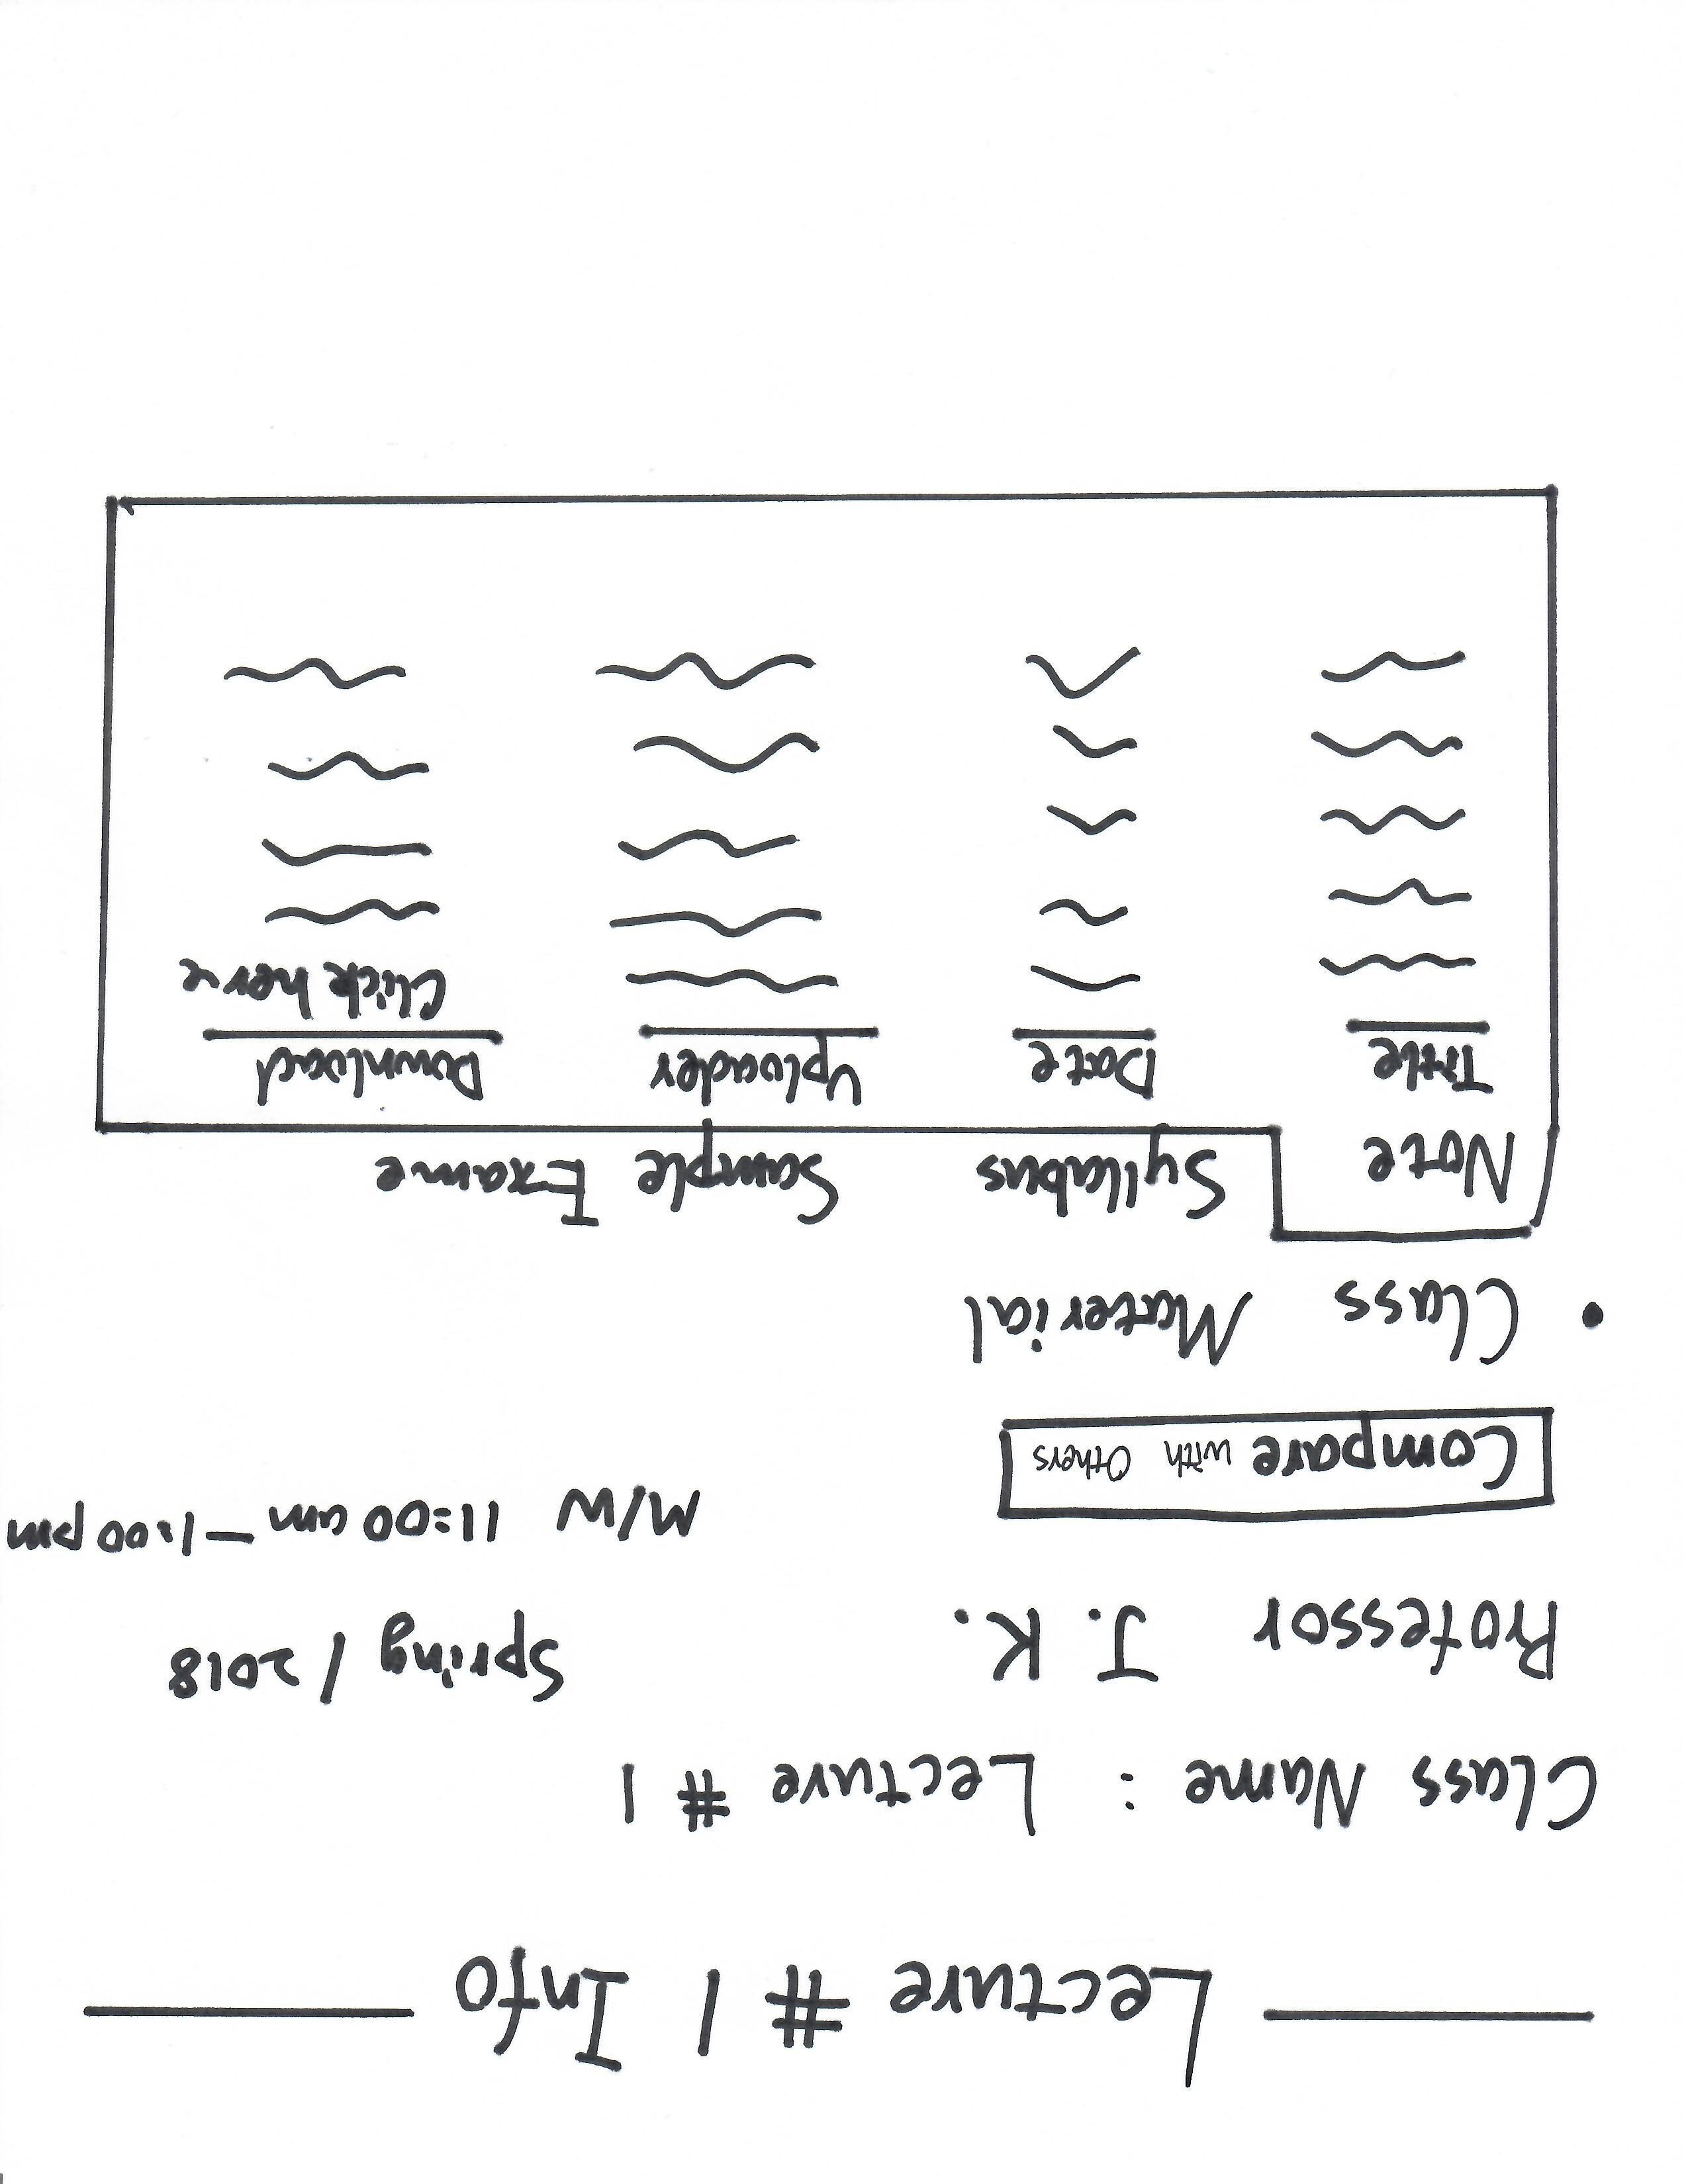 Lecture # 1 Info
Class Name : Lecture # 1
Professor J. K.
Spring / 2018
M/W 11:00 am - 1:00 pm
Compare with Others
• Class Material
Note Syllabus Sample Exame
Title Date Uploader Download
Click here